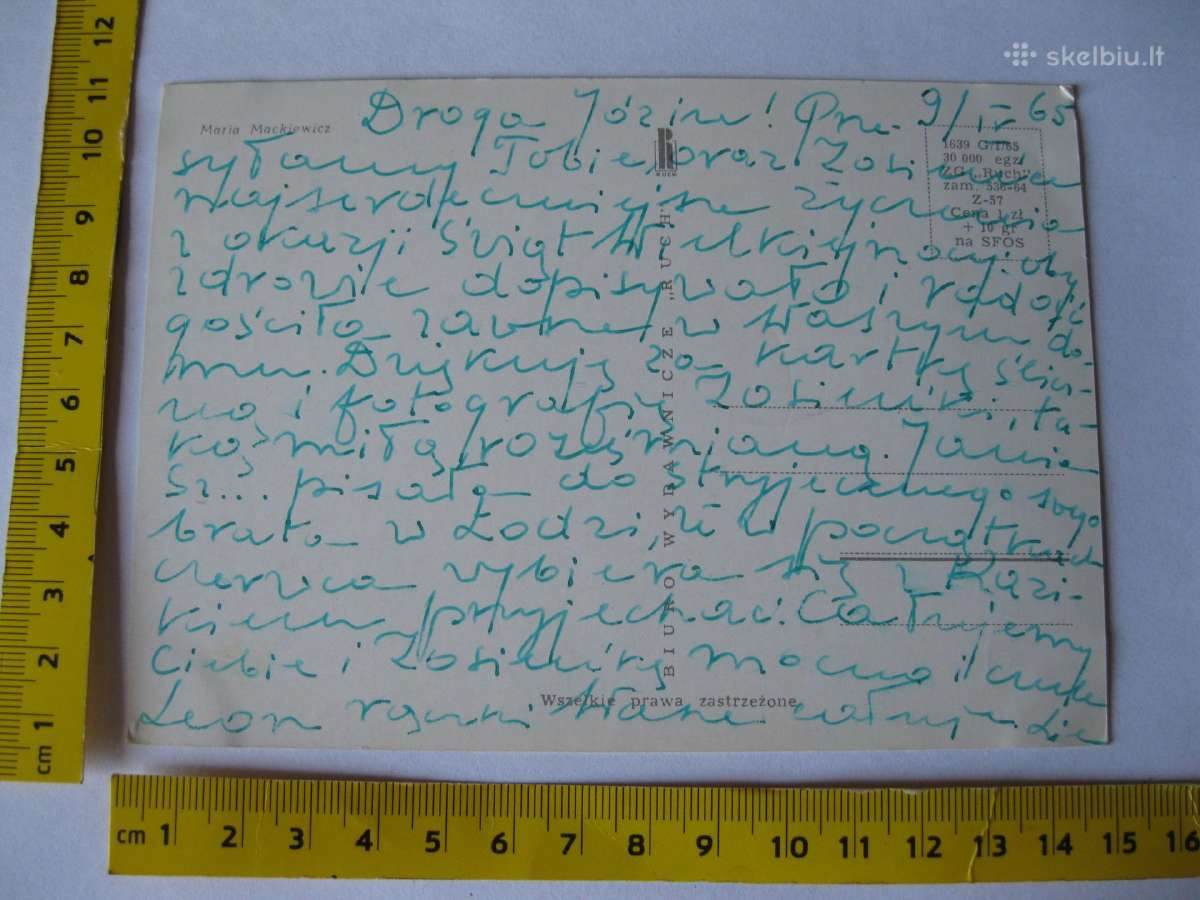 skelbiu.lt
Maria Mackiewicz
9/IV 65
Droga Józiu! Prze-
syłamy Tobie oraz Zosieńce
najserdeczniejsze życzenia
z okazji Świąt Wielkiejnocy. Oby
zdrowie dopisywało i radość
gościła zawsze w Waszym do-
mu. Dziękuję za kartkę ślicz-
ną i fotografię Zosieńki, ta-
kąś miłą, roześmianą. Jania
Sz... pisała do stryjecznego swego
brata w Łodzi, że w początkach
czerwca wybiera się z Kazi-
kiem przyjechać. Całujemy
Ciebie i Zosieńkę mocno i
Leon rączki Wasze całuje.
RUCH
BIURO WYDAWNICZE „RUCH"
1639 G/I/65
30 000 egz.
ZG „Ruch"
zam. 536-64
Z-57
Cena 1 zł
+ 10 gr
na SFOS
Wszelkie prawa zastrzeżone
12
11
10
9
8
7
6
5
4
3
2
1
cm
cm 1 2 3 4 5 6 7 8 9 10 11 12 13 14 15 16